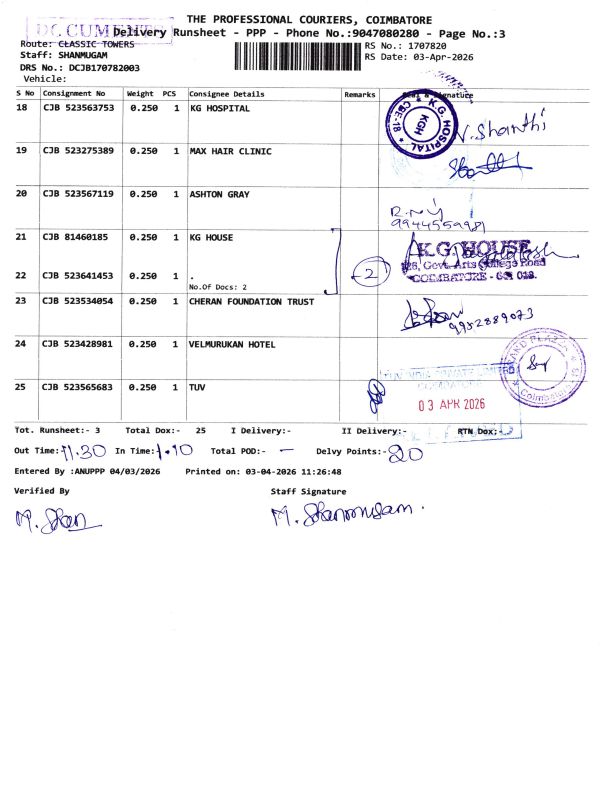 THE PROFESSIONAL COURIERS, COIMBATORE
DOCUMENTS
Delivery Runsheet - PPP - Phone No.:9047080280 - Page No.:3
Route: CLASSIC TOWERS
RS No.: 1707820
Staff: SHANMUGAM
RS Date: 03-Apr-2026
DRS No.: DCJB170782003
Vehicle:
S No Consignment No Weight PCS Consignee Details Remarks Seal & Signature
18 CJB 523563753 0.250 1 KG HOSPITAL
K.G. HOSPITAL CBE-18 KGH
V. Shanthi
19 CJB 523275389 0.250 1 MAX HAIR CLINIC
20 CJB 523567119 0.250 1 ASHTON GRAY
9944559981
21 CJB 81460185 0.250 1 KG HOUSE
K.G. HOUSE
Govt. Arts College Road
COIMBATORE - 641 018.
22 CJB 523641453 0.250 1 .
No.Of Docs: 2
2
23 CJB 523534054 0.250 1 CHERAN FOUNDATION TRUST
9952889073
24 CJB 523428981 0.250 1 VELMURUKAN HOTEL
Coimbatore
25 CJB 523565683 0.250 1 TUV
COIMBATORE
03 APR 2026
Tot. Runsheet:- 3 Total Dox:- 25 I Delivery:- II Delivery:- RTN Dox:-
Out Time:- 11.30 In Time:- 1.10 Total POD:- — Delvy Points:- 20
Entered By :ANUPPP 04/03/2026 Printed on: 03-04-2026 11:26:48
Verified By Staff Signature
M. Shan M. Shanmugam.